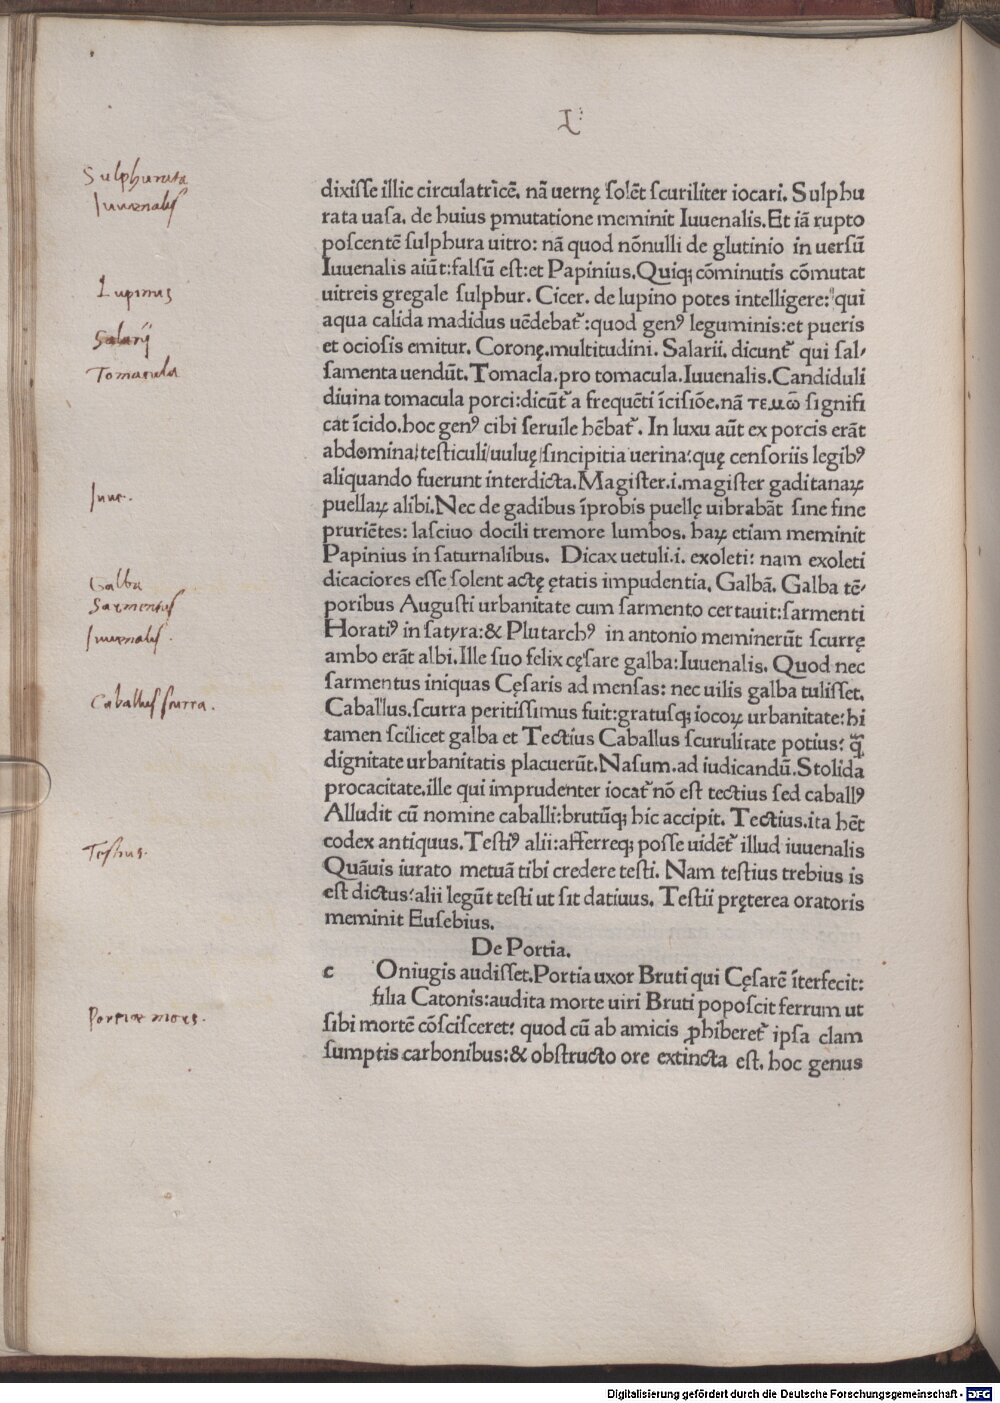 I:
Sulphurata
Iuuenalis
Lupinus
Salarij
Tomacula
Iuue.
Galba
Sarmentus
Iuuenalis.
Caballus scurra.
Testius.
Portiæ mors.
dixisse illic circulatricẽ. nã uernę solẽt scuriliter iocari. Sulphu
rata uasa. de huius ꝑmutatione meminit Iuuenalis. Et iã rupto
poscentẽ sulphura uitro: nã quod nõnulli de glutinio in uersũ
Iuuenalis aiũt: falsũ est: et Papinius. Quiqꝫ cõminutis cõmutat
uitreis gregale sulphur. Cicer. de lupino potes intelligere: qui
aqua calida madidus uẽdebat᷒: quod genꝰ leguminis: et pueris
et ociosis emitur. Coronę. multitudini. Salarii. dicunt᷒ qui sal/
samenta uendũt. Tomacla. pro tomacula. Iuuenalis. Candiduli
diuina tomacula porci: dicũt᷒ a frequẽti ĩcisiõe. nã τεμῶ signifi
cat ĩcido. hoc genꝰ cibi seruile hẽbat᷒. In luxu aũt ex porcis erãt
abdomina/testiculi/uuluę/sincipitia uerina: quę censoriis legibꝰ
aliquando fuerunt interdicta. Magister. i. magister gaditanaꝝ
puellaꝝ alibi. Nec de gadibus ĩprobis puellę uibrabãt sine fine
pruriẽtes: lasciuo docili tremore lumbos. haꝝ etiam meminit
Papinius in saturnalibus. Dicax uetuli. i. exoleti: nam exoleti
dicaciores esse solent actę ętatis impudentia. Galbã. Galba tẽ/
poribus Augusti urbanitate cum sarmento certauit: sarmenti
Horatiꝰ in satyra: & Plutarchꝰ in antonio meminerũt scurrę
ambo erãt albi. Ille suo felix cęsare galba: Iuuenalis. Quod nec
sarmentus iniquas Cęsaris ad mensas: nec uilis galba tulisset.
Caballus. scurra peritissimus fuit: gratusqꝫ iocoꝝ urbanitate: hi
tamen scilicet galba et Tectius Caballus scurulitate potius: q̃
dignitate urbanitatis placuerũt. Nasum. ad iudicandũ. Stolida
procacitate. ille qui imprudenter iocat᷒ nõ est tectius sed caballꝰ
Alludit cũ nomine caballi: brutũqꝫ hic accipit. Tectius. ita hẽt
codex antiquus. Testiꝰ alii: afferreqꝫ posse uidẽt᷒ illud iuuenalis
Quãuis iurato metuã tibi credere testi. Nam testius trebius is
est dictus: alii legũt testi ut sit datiuus. Testii pręterea oratoris
meminit Eusebius.
De Portia.
c Oniugis audisset. Portia uxor Bruti qui Cęsarẽ ĩterfecit:
filia Catonis: audita morte uiri Bruti poposcit ferrum ut
sibi mortẽ cõscisceret: quod cũ ab amicis ꝓhiberet᷒ ipsa clam
sumptis carbonibus: & obstructo ore extincta est. hoc genus
Digitalisierung gefördert durch die Deutsche Forschungsgemeinschaft - DFG